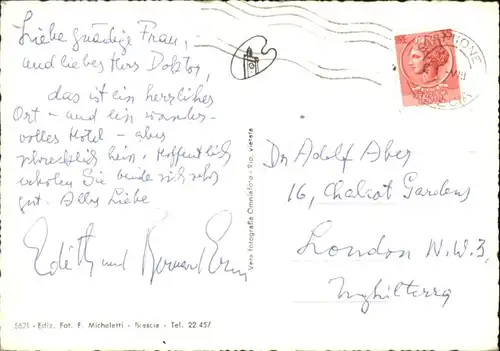 Liebe gnädige Frau,
und lieber Herr Doktor,
das ist ein herrlicher
Ort – und ein wunder-
volles Hotel – aber
schrecklich heiss. Hoffentlich
erholen Sie beide sich sehr
gut. Alles Liebe
Edith und Bernard
5621 - Ediz. Fot. F. Micheletti - Brescia - Tel. 22.457
Vera fotografia Omniafoto - Rip. vietata
Dr Adolf Aber
16, Chalcot Gardens
London N.W.3,
Inghilterra